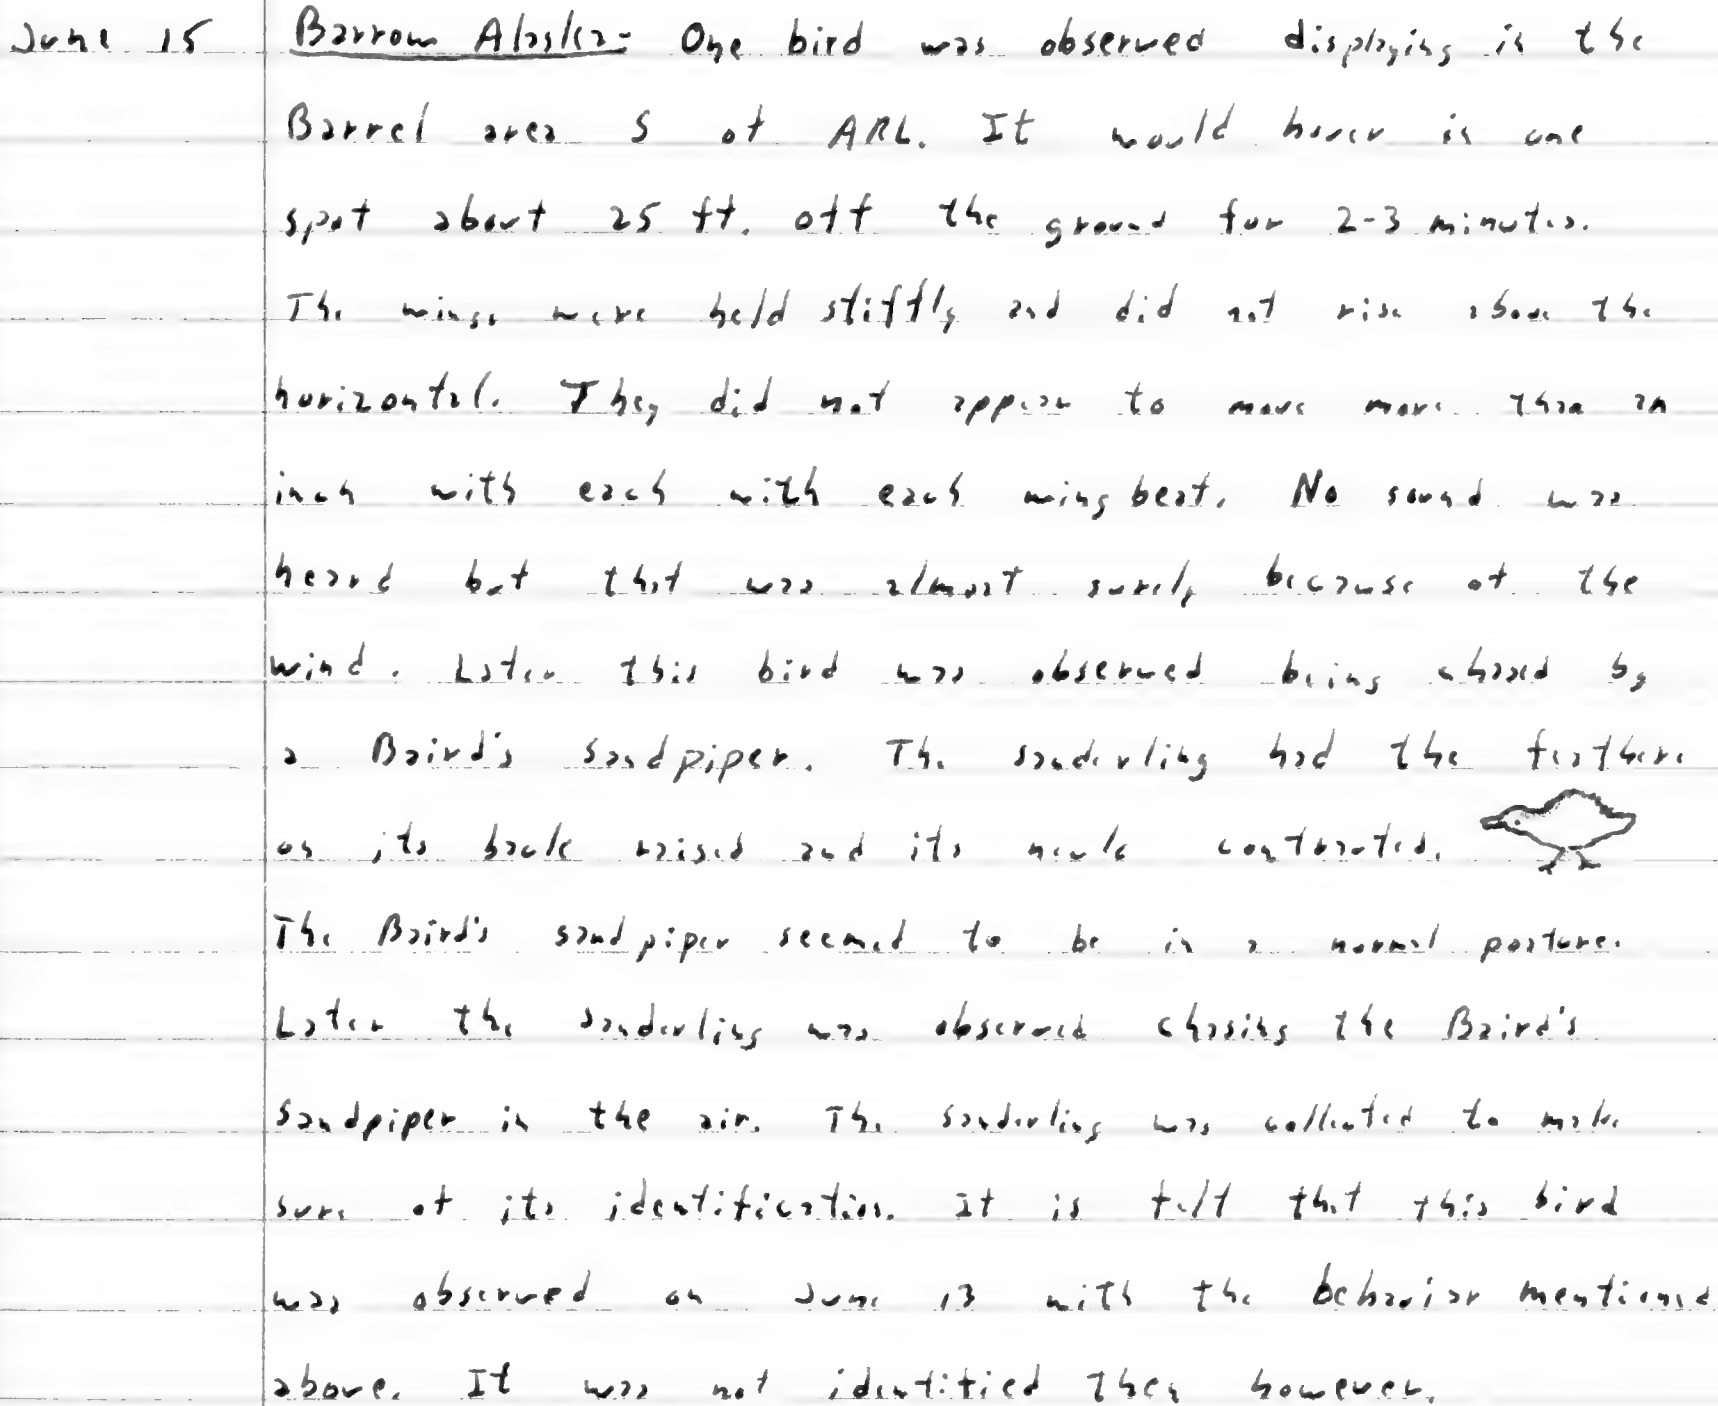 June 15 Barrow Alaska- One bird was observed displaying in the
Barrel area S of ARL. It would hover in one
spot about 25 ft. off the ground for 2-3 minutes.
The wings were held stiffly and did not rise above the
horizontal. They did not appear to move more than an
inch with each with each wing beat. No sound was
heard but that was almost surely because of the
wind. Later this bird was observed being chased by
a Baird's sandpiper. The sanderling had the feathers
on its back raised and its neck contracted.
The Baird's sandpiper seemed to be in a normal posture.
Later the sanderling was observed chasing the Baird's
sandpiper in the air. The sanderling was collected to make
sure of its identification. It is felt that this bird
was observed on June 13 with the behavior mentioned
above. It was not identified then however.